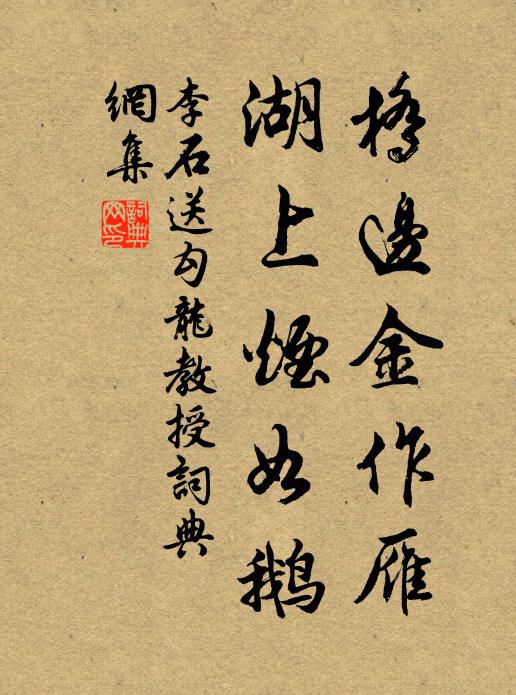 橋邊金作雁
湖上煙如鵝
李石送句龍教授詞典
網集
詞典
網印